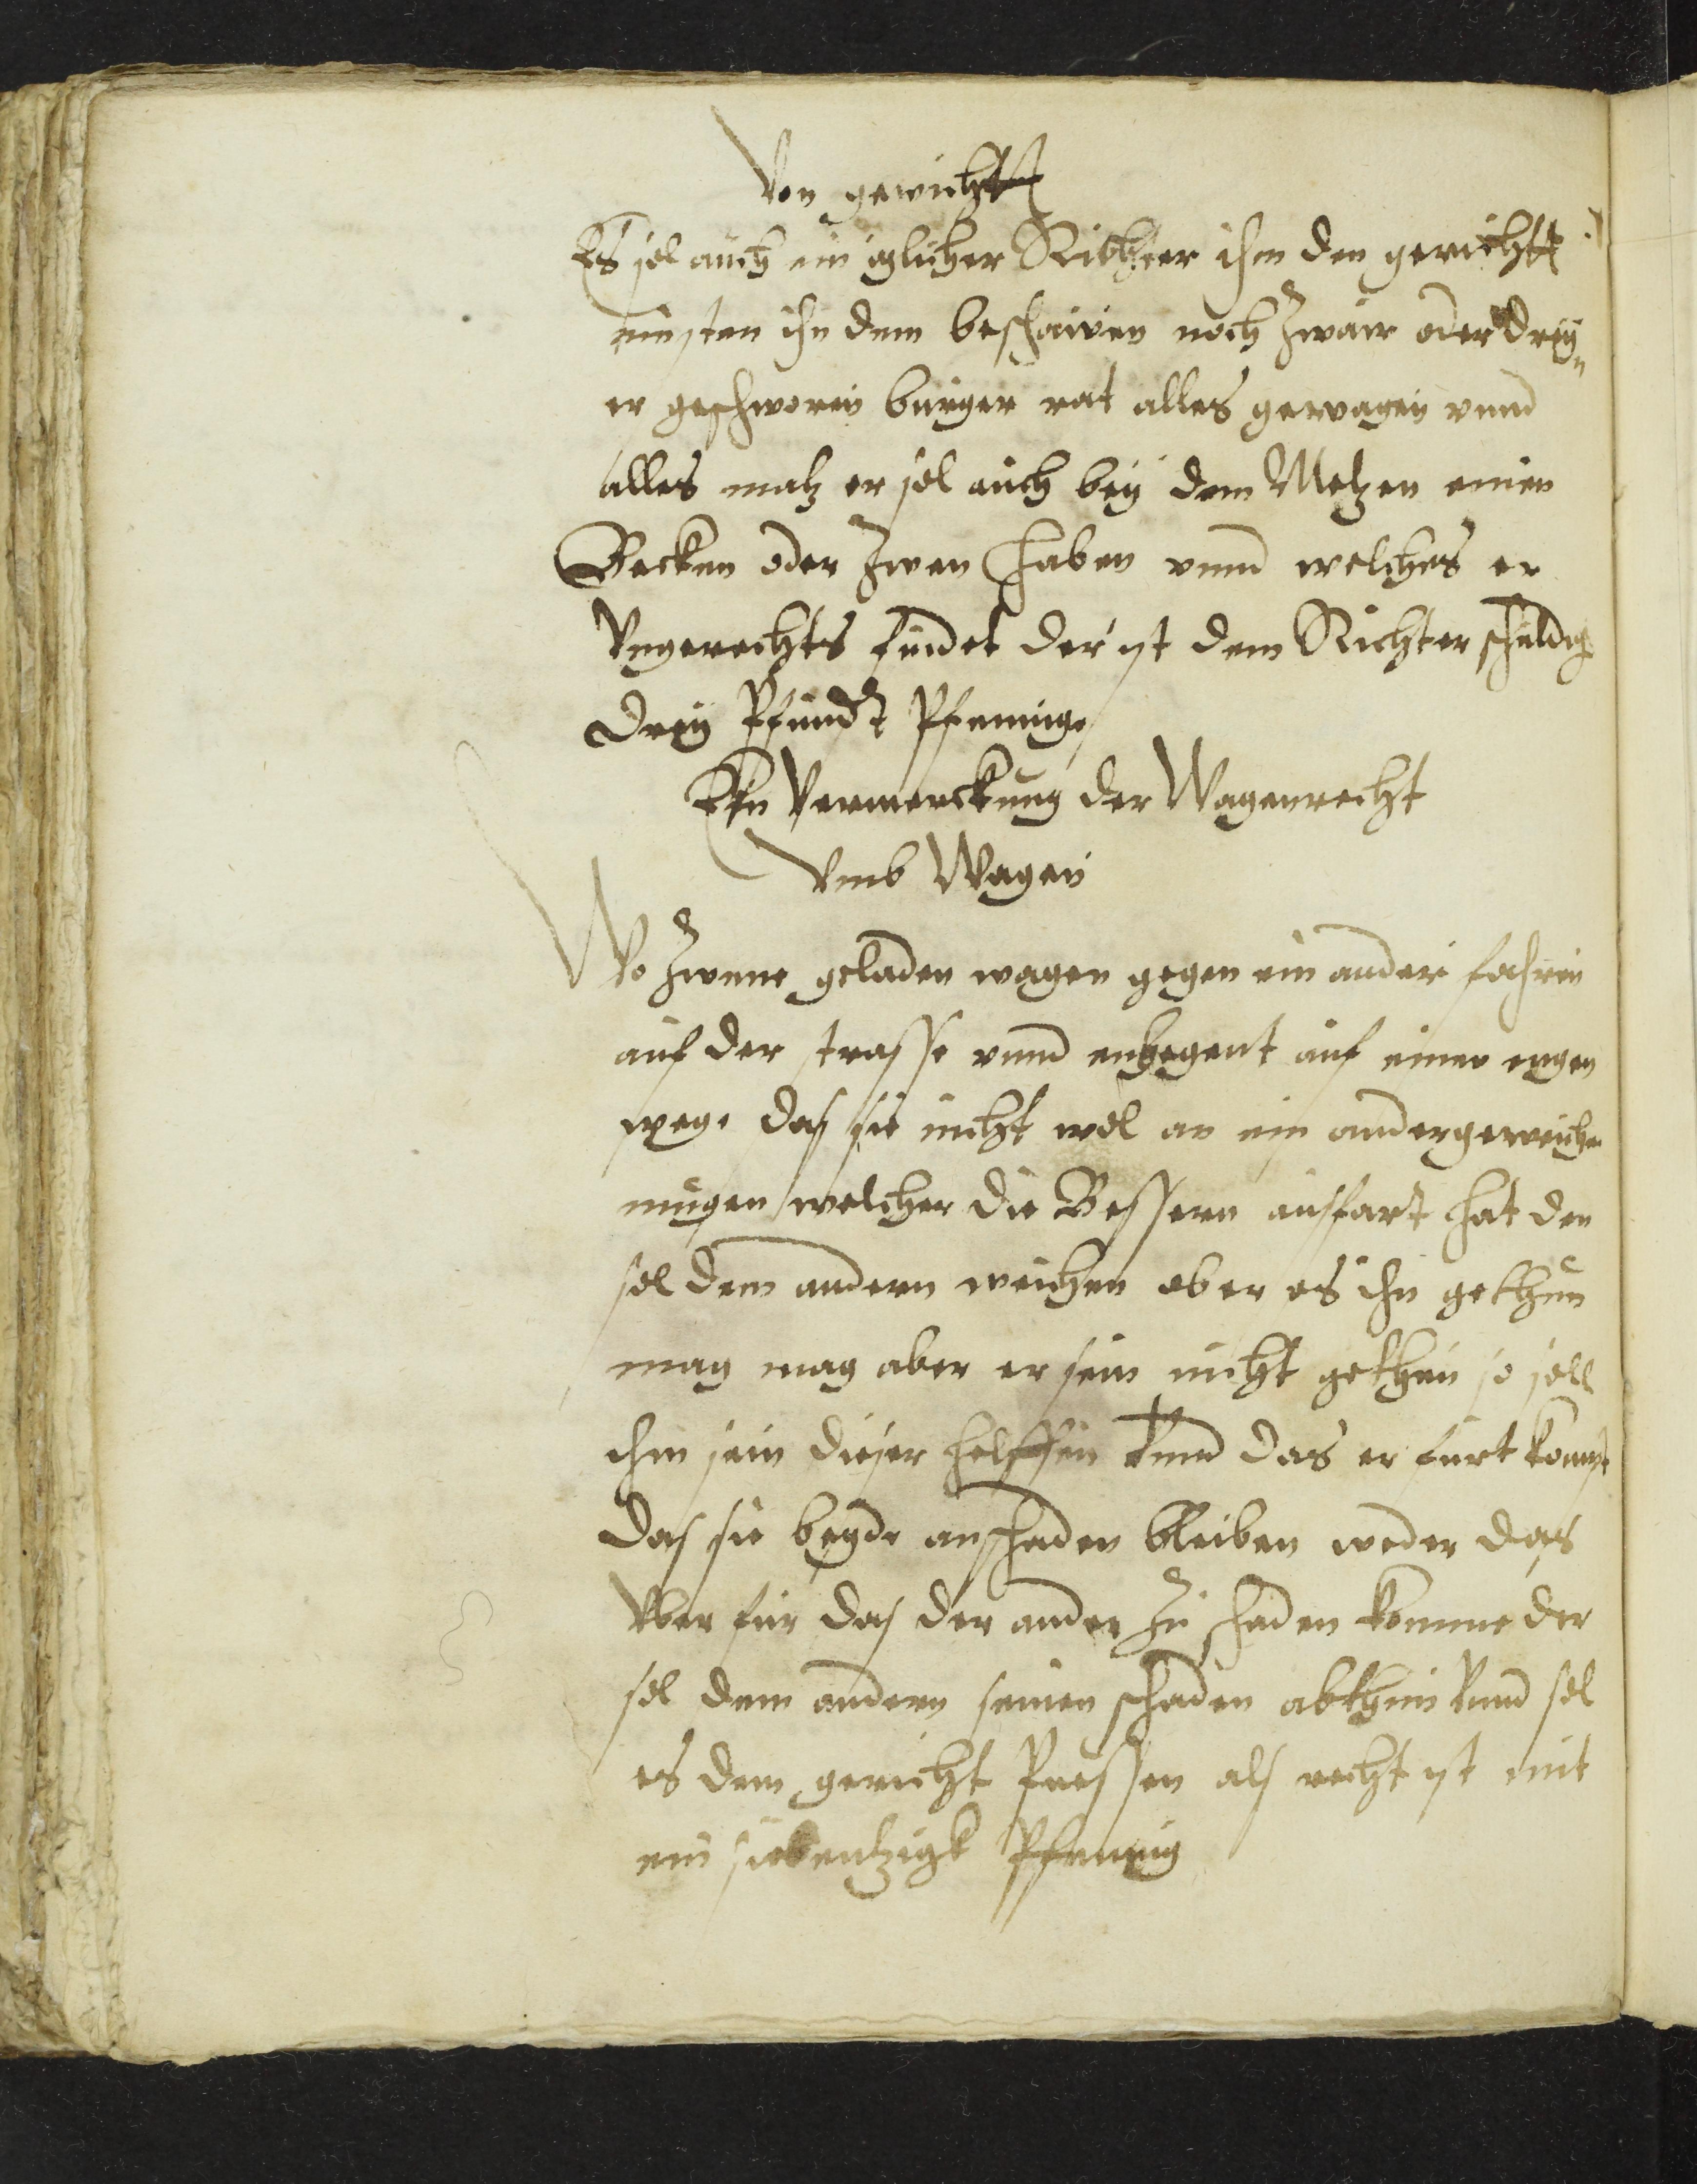 Von gewicht
Es sol auch ein iglicher Richter ihn den gericht
einsten ihn dem beschawen noch zwair oder drey
er geschworen burger rat alles gewagen vnnd
alles malz er sol auch bey dem Melzen einen
Becken oder zwen haben vnnd welches er
Vngerechts findet der ist dem Richter schuldig
drey Pfundt Pfenninge
Ein Vermerckung der Wagenrecht
Vmb Wagen
Wo zwene geladen wagen gegen ein ander fahren
auf der strasse vnnd enkegent auf einer engen
wege das sie nicht wol an ein ander geweichen
mugen welcher die Bessern ausfart hat den
sol dem andern weichen ob er es ihn gethun
mag mag aber er sein nicht gethun so soll
ihm sein dieser helffen Vnnd das er furt komme
das sie beyde anschaden bleiben weder das
Vber fur das der ander zu schaden komme der
sol dem andern seinen schaden abthun Vnnd sol
es dem gericht Puessen als recht ist mit
ein siebentzigk Pfennig